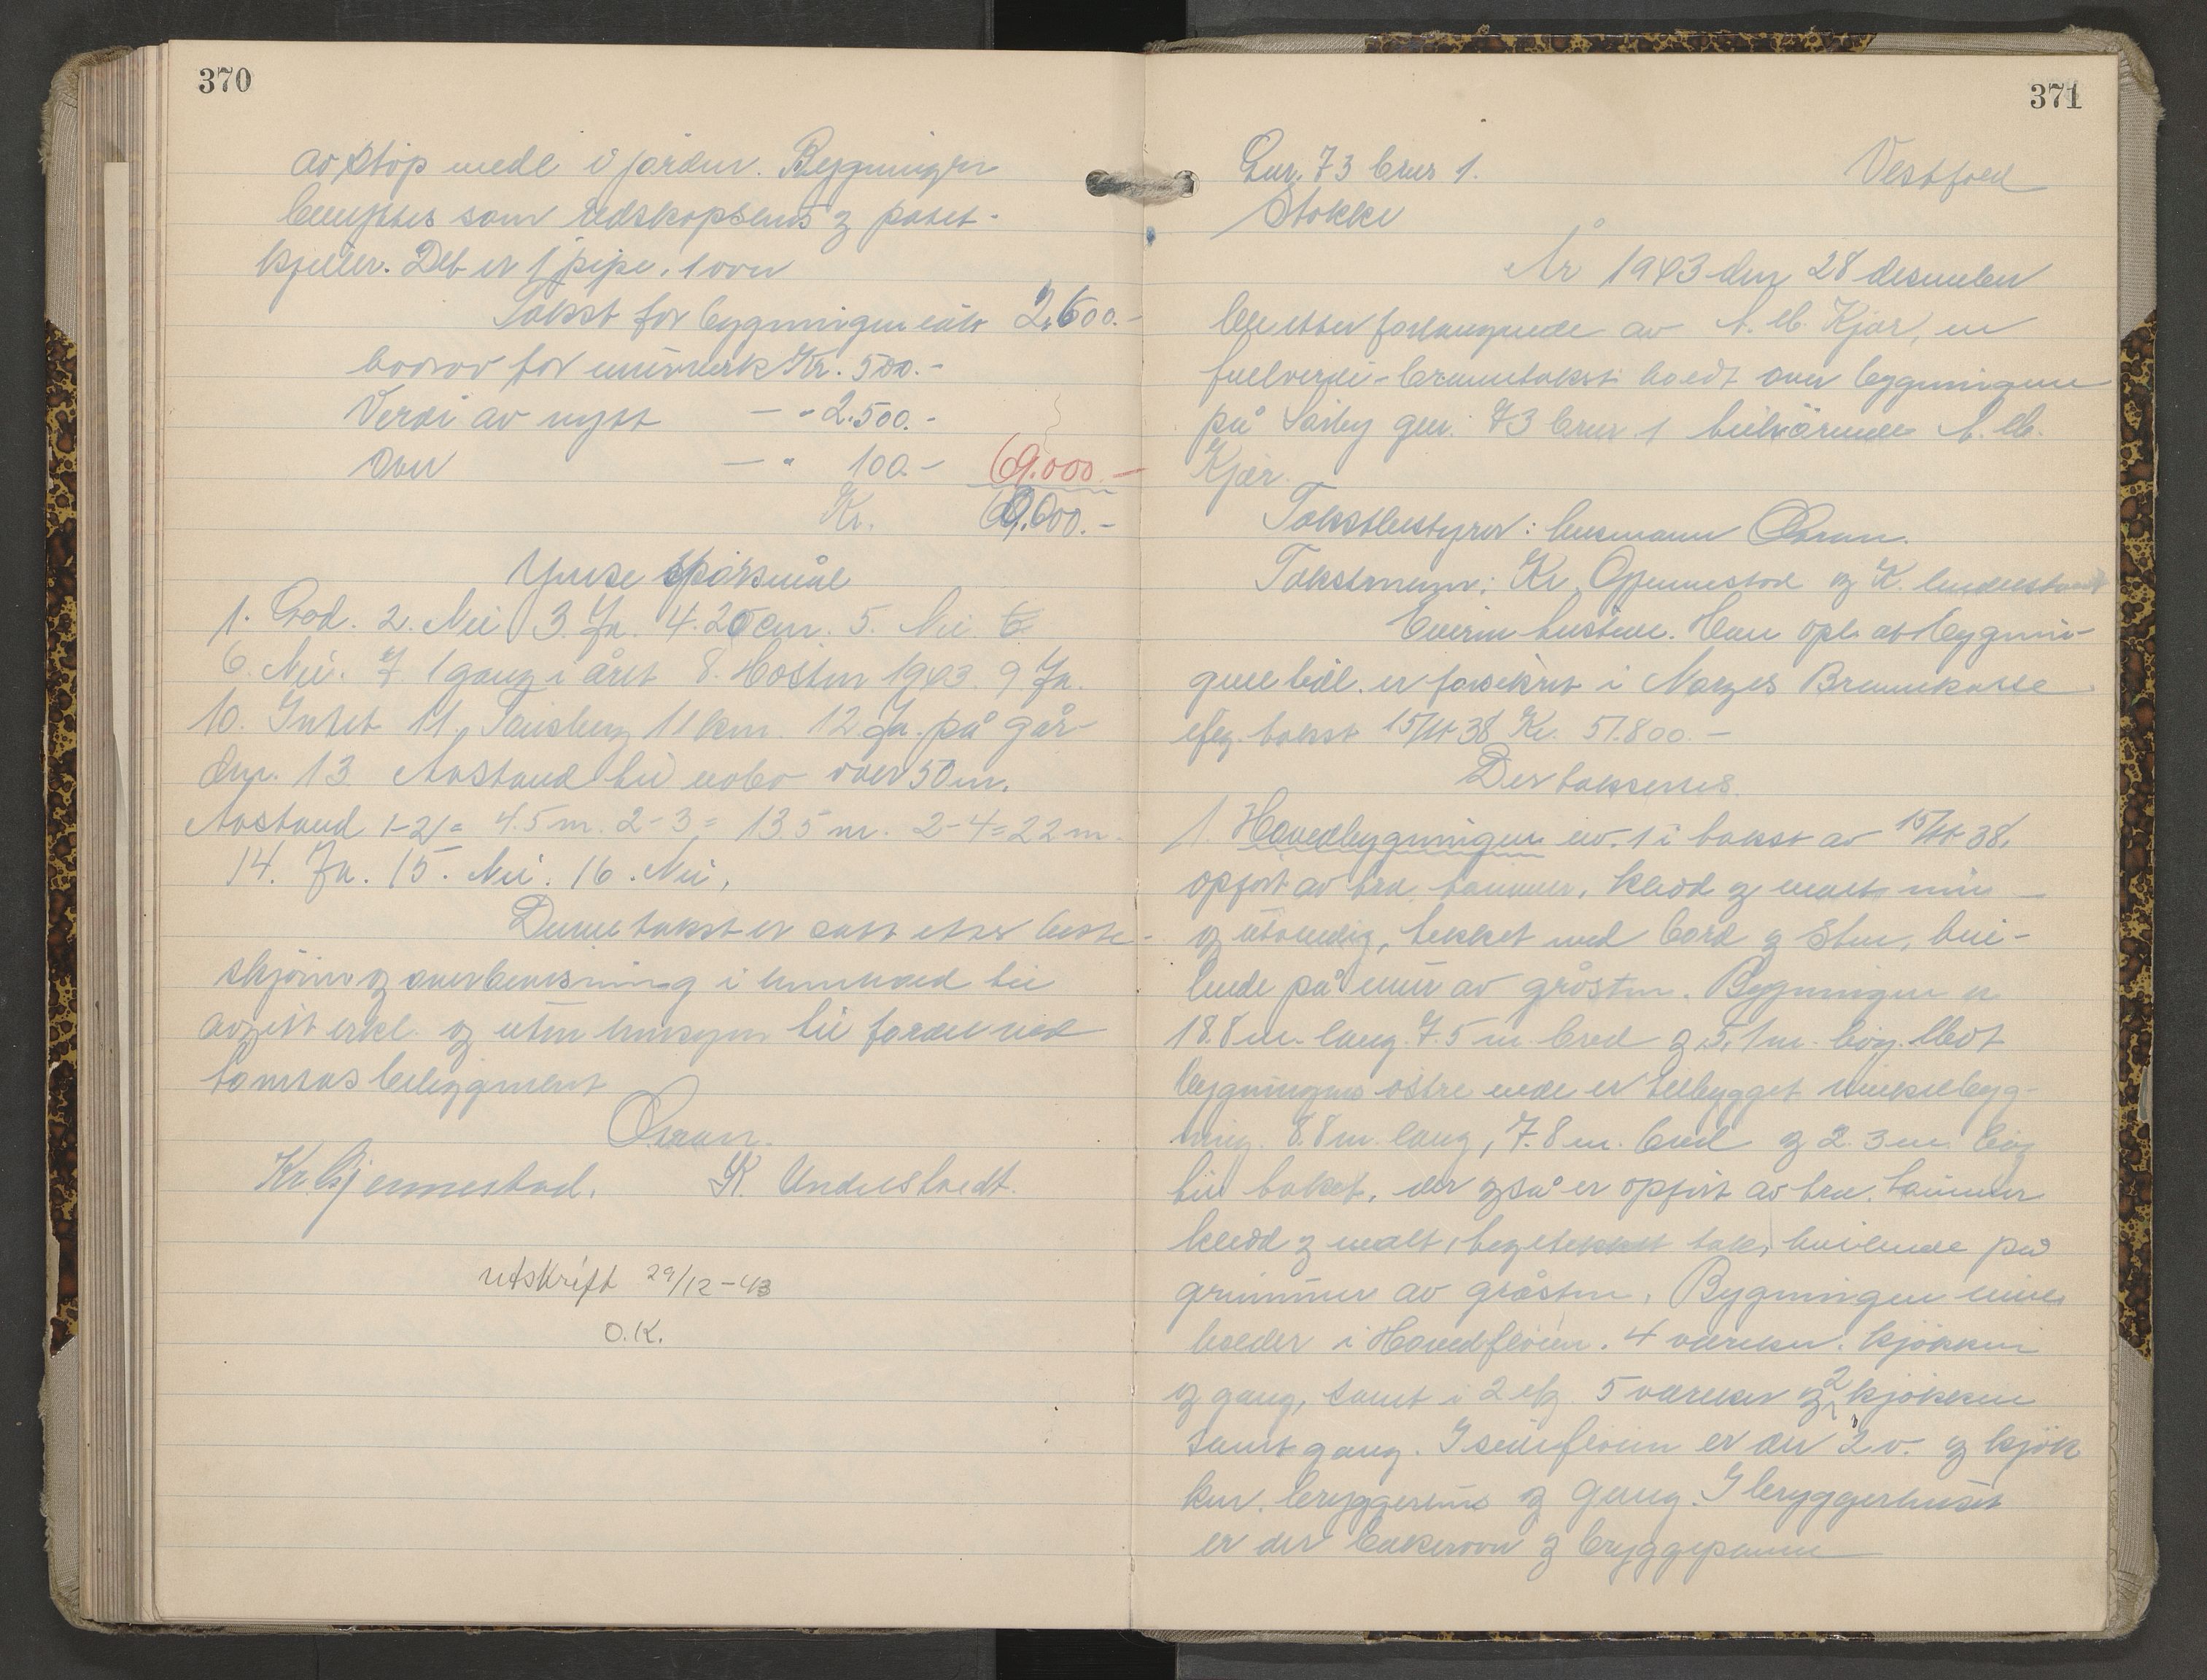 370
av støp nedl i jorden. Bygningen
benyttes som redskapshus og potet-
kjeller. Det er 1 pipe, 1 ovn
Takst for bygningen inkl 2.600.-
herav for murverk Kr. 500.-
Verdi av nytt — " 2.500.-
Ovn — " 100.- 69.000.-
Kr. 69.000.-
Ymse spörsmål
1. God. 2. Nei 3. Ja. 4. 20 cm. 5. Nei
6. Nei. 7. 1 gang i året 8. Høsten 1943. 9 Ja.
10. Intet 11. Tønsberg 11 km. 12 Ja. på går-
den. 13 Avstand til nabo over 50 m.
Avstand 1-2 = 4.5 m. 2-3 = 13.5 m. 2-4 = 22 m.
14. Ja. 15. Nei. 16. Nei.
Denne takst er satt etter beste
skjönn og overbevisning i henhold til
avgitt erkl. og uten hensyn til fordel ved
tomtens beliggenhet
Kr. Gjennestad. K. Understadt.
utskrift 29/12-43
O.K.
371
Gnr. 73 bnr 1. Vestfold
Stokke
År 1943 den 28 desember
ble etter forlangende av A. M. Kjær, en
fullverdi-branntakst holdt over bygningene
på Sæby gnr. 73 bnr 1 tilhörende A. M.
Kjær.
Takstbestyrer: lensmann
Takstmenn: Kr. Gjennestad og K. Understadt
Eieren tilstede. Han opl. at bygnin-
gene er forsikret i Norges Brannkasse
ifлg. takst 15/11 38 Kr. 51.800.-
Der takseres.
1. Hovedbygningen nr. 1 i takst av 15/11 38.
opfört av tre, tømmer, kledd og malt inn-
og utvendig, tekket med bord og sten, hvi-
lende på mur av gråsten. Bygningen er
18.8 m. lang. 7.5 m. bred og 5.1 m. høy. Mot
bygningens östre ende er tilbygget vinkelbyg-
ning. 8.8 m. lang, 7.8 m. bred og 2.3 m. høy
til taket, der også er opfört av tre, tømmer
kledd og malt, tegltekket tak, hvilende på
grunnmur av gråsten. Bygningen inne-
holder i Hovedfløien. 4 værelser. kjökken
og gang, samt i 2 etg. 5 værelser og 2 kjökken
samt gang. I sidefløien er der 2 v. og kjök
ken. bryggerhus og gang. I bryggerhuset
er der bakerovn og bryggepanne